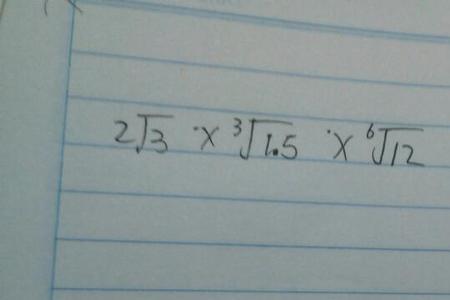 2√3 × ³√1.5 × ⁶√12